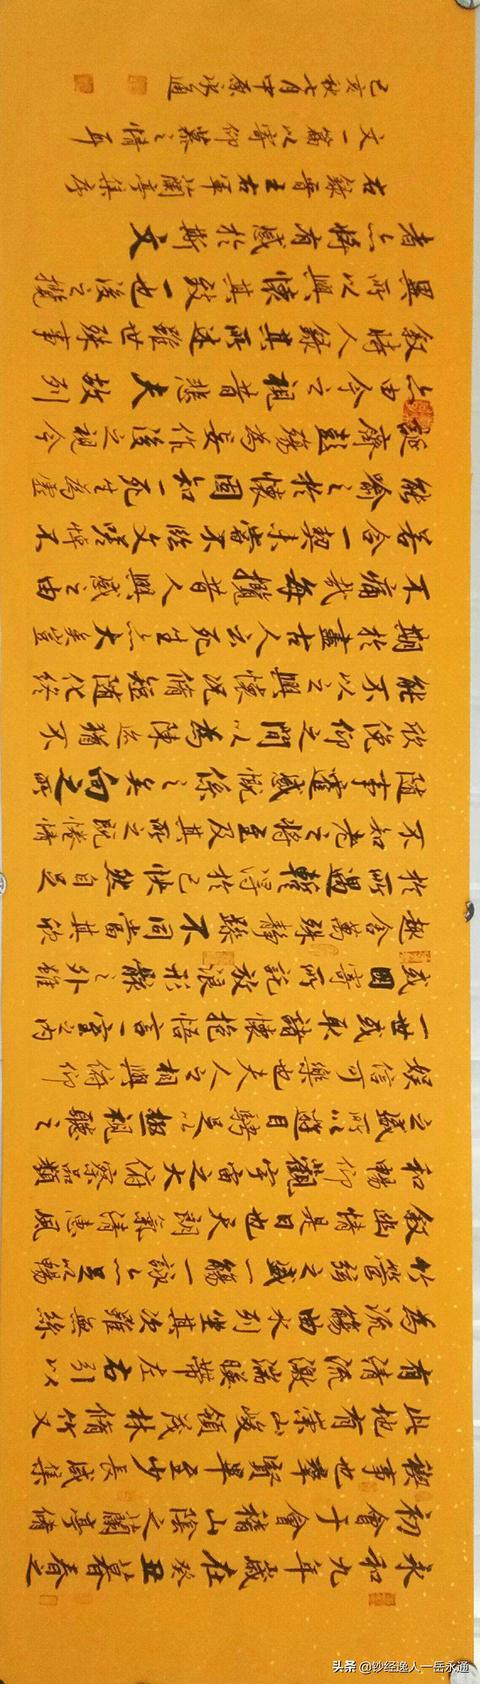 永和九年歲在癸丑暮春之
初會于會稽山陰之蘭亭脩
禊事也羣賢畢至少長咸集
此地有崇山峻領茂林脩竹又
有清流激湍暎帶左右引以
為流觴曲水列坐其次雖無絲
竹管弦之盛一觴一詠亦足以暢
敘幽情是日也天朗氣清惠風
和暢仰觀宇宙之大俯察品類
之盛所以遊目騁足以極視聽之
娛信可樂也夫人之相與俯仰
一世或取諸懷抱悟言一室之內
或因寄所託放浪形骸之外雖
趣舍萬殊靜躁不同當其欣
於所遇暫得於己快然自足
不知老之將至及其所之既惓情
隨事遷感慨係之矣向之所
欣俛仰之間以為陳迹猶不
能不以之興懷況脩短隨化終
期於盡古人云死生亦大矣豈
不痛哉每攬昔人興感之由
若合一契未嘗不臨文嗟悼不
能喻之於懷固知一死生為虛
誕齊彭殤為妄作後之視今
亦由今之視昔悲夫故列
敘時人錄其所述雖世殊事
異所以興懷其致一也後之攬
者亦將有感於斯文
右錄晉王右軍蘭亭集序
文一篇以寄仰慕之情耳
己亥秋七月中原永通
头条 @钞经逸人一岳永通